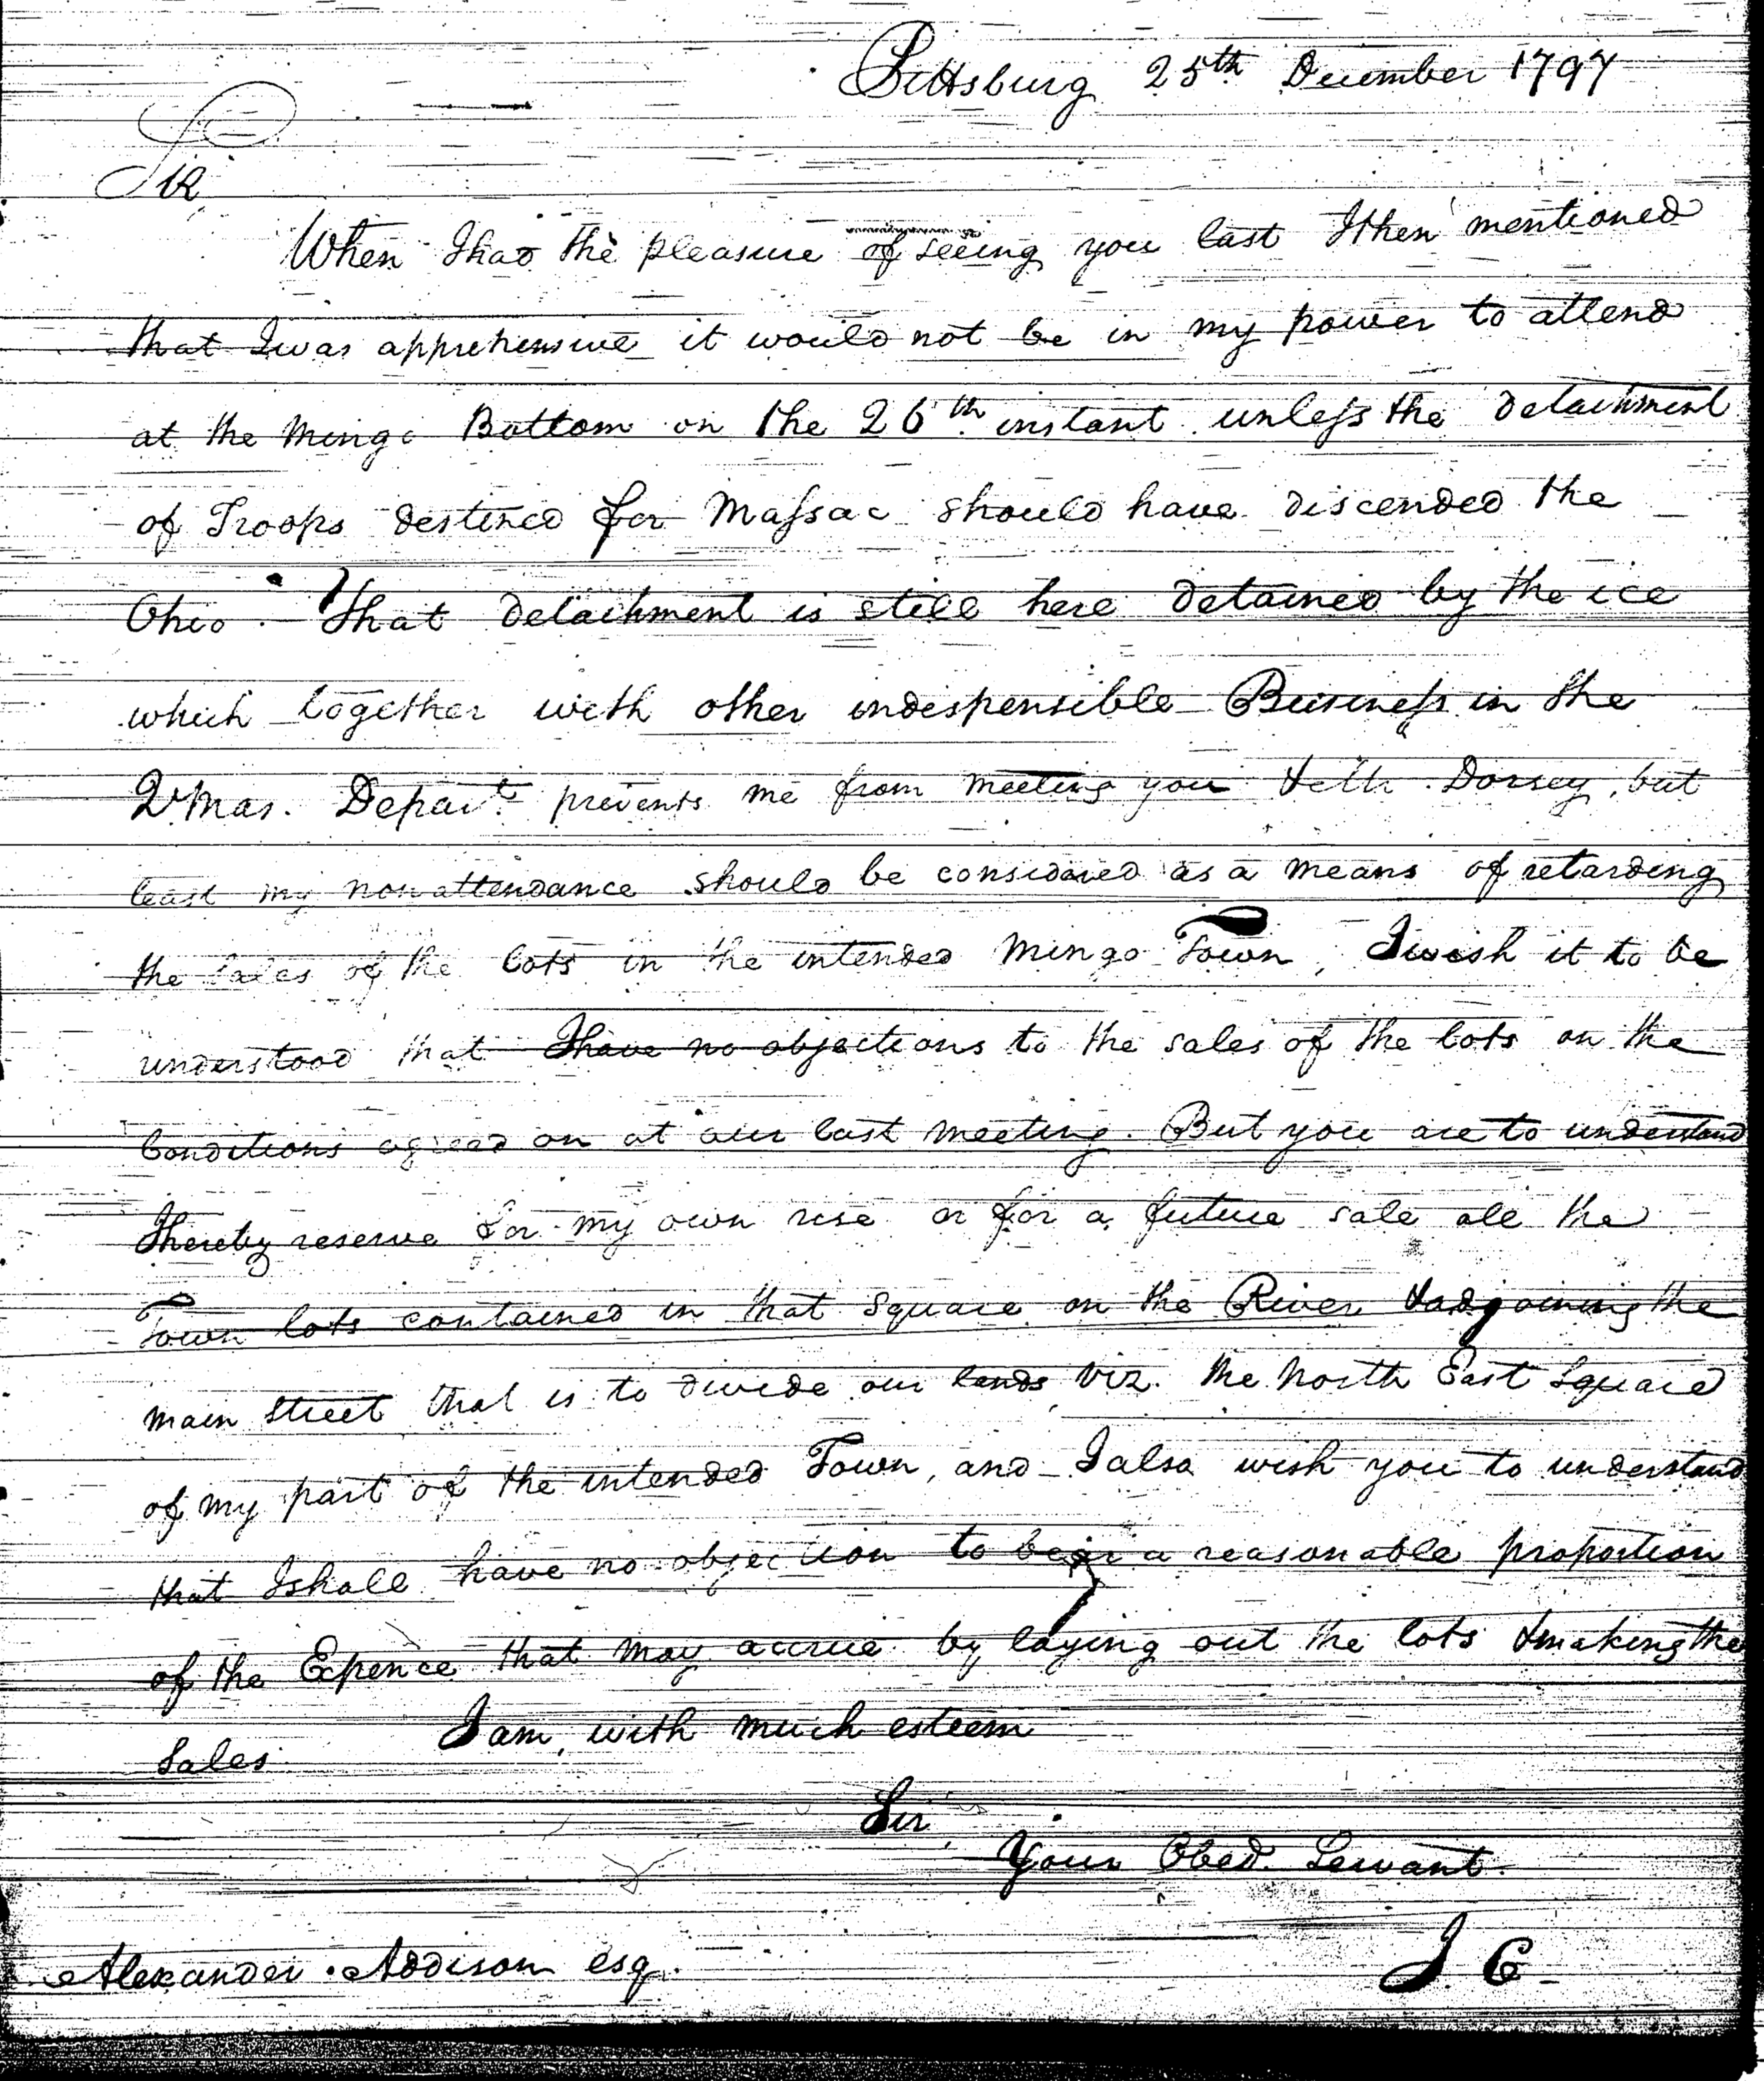 Pittsburg 25th December 1797
Sir
When I had the pleasure of seeing you last I then mentioned
that I was apprehensive it would not be in my power to attend
at the Mingo Bottom on the 26th instant unless the detachment
of Troops destined for Massac should have discended the
Ohio. That detachment is still here detained by the ice
which together with other indispensible Business in the
Q Mas. Depart. prevents me from meeting you & Dorsey, but
least my nonattendance should be considered as a means of retarding
the sales of the lots in the intended Mingo Town, I wish it to be
understood that I have no objections to the sales of the lots on the
Conditions agreed on at our last meeting. But you are to understand
I hereby reserve for my own use or for a future sale all the
Town lots contained in that Square on the River & adjoining the
main Street that is to divide our lands, viz. the North East Square
of my part of the intended Town, and I also wish you to understand
that I shall have no objection to bear a reasonable proportion
of the Expence that may accrue by laying out the lots & making the
Sales
I am, with much esteem
Sir,
Your Obed. Servant.
Alexander Addison esq.
J C